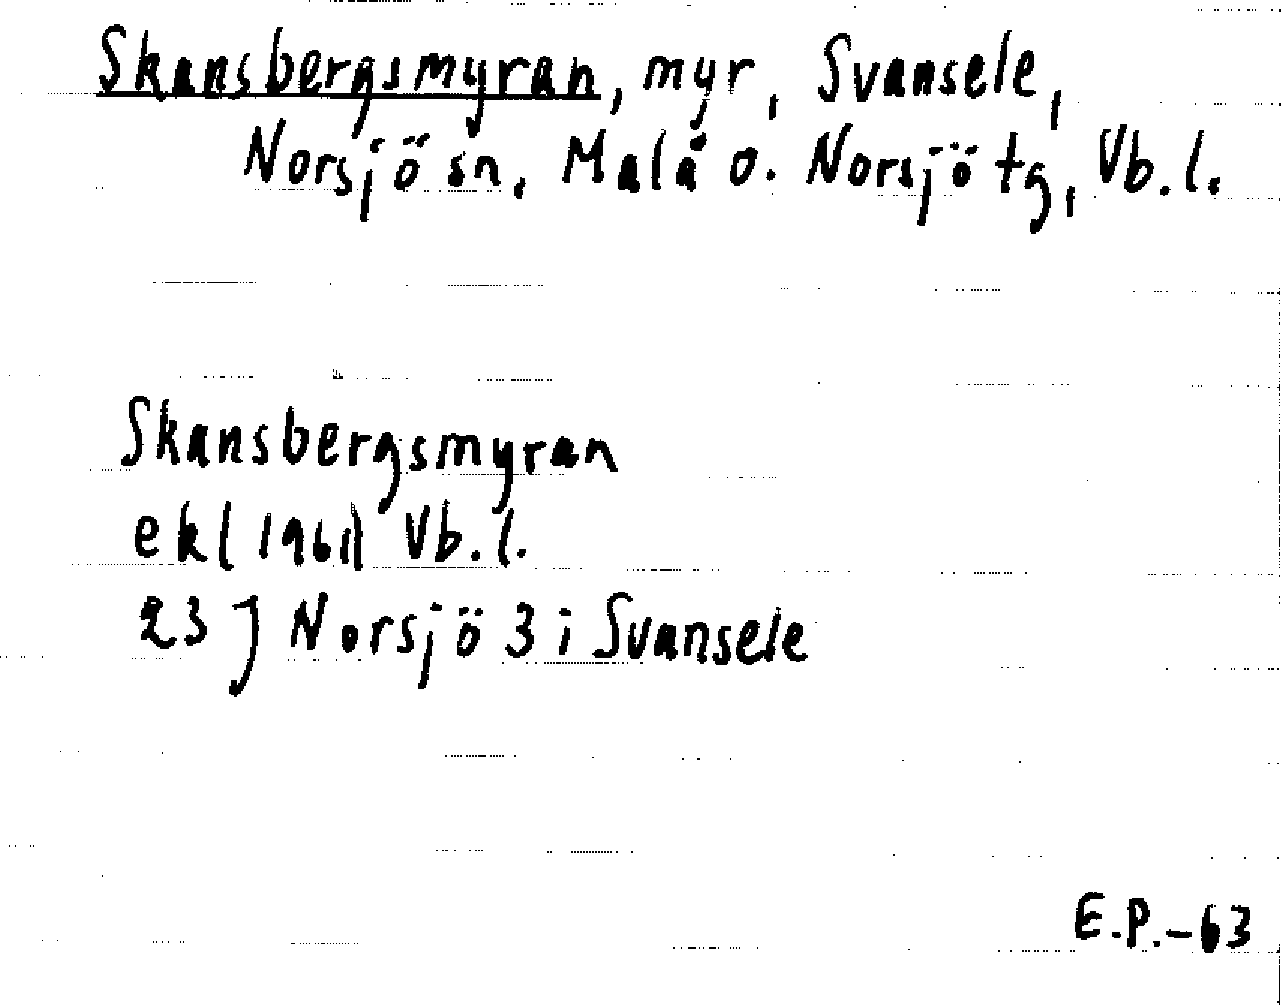 Skansbergsmyran, myr, Svansele,
Norsjö sn, Malå o. Norsjö tg, Vb. l.
Skansbergsmyran
ek (1961) Vb. l.
23 J Norsjö 3 i Svansele
E.P.-63